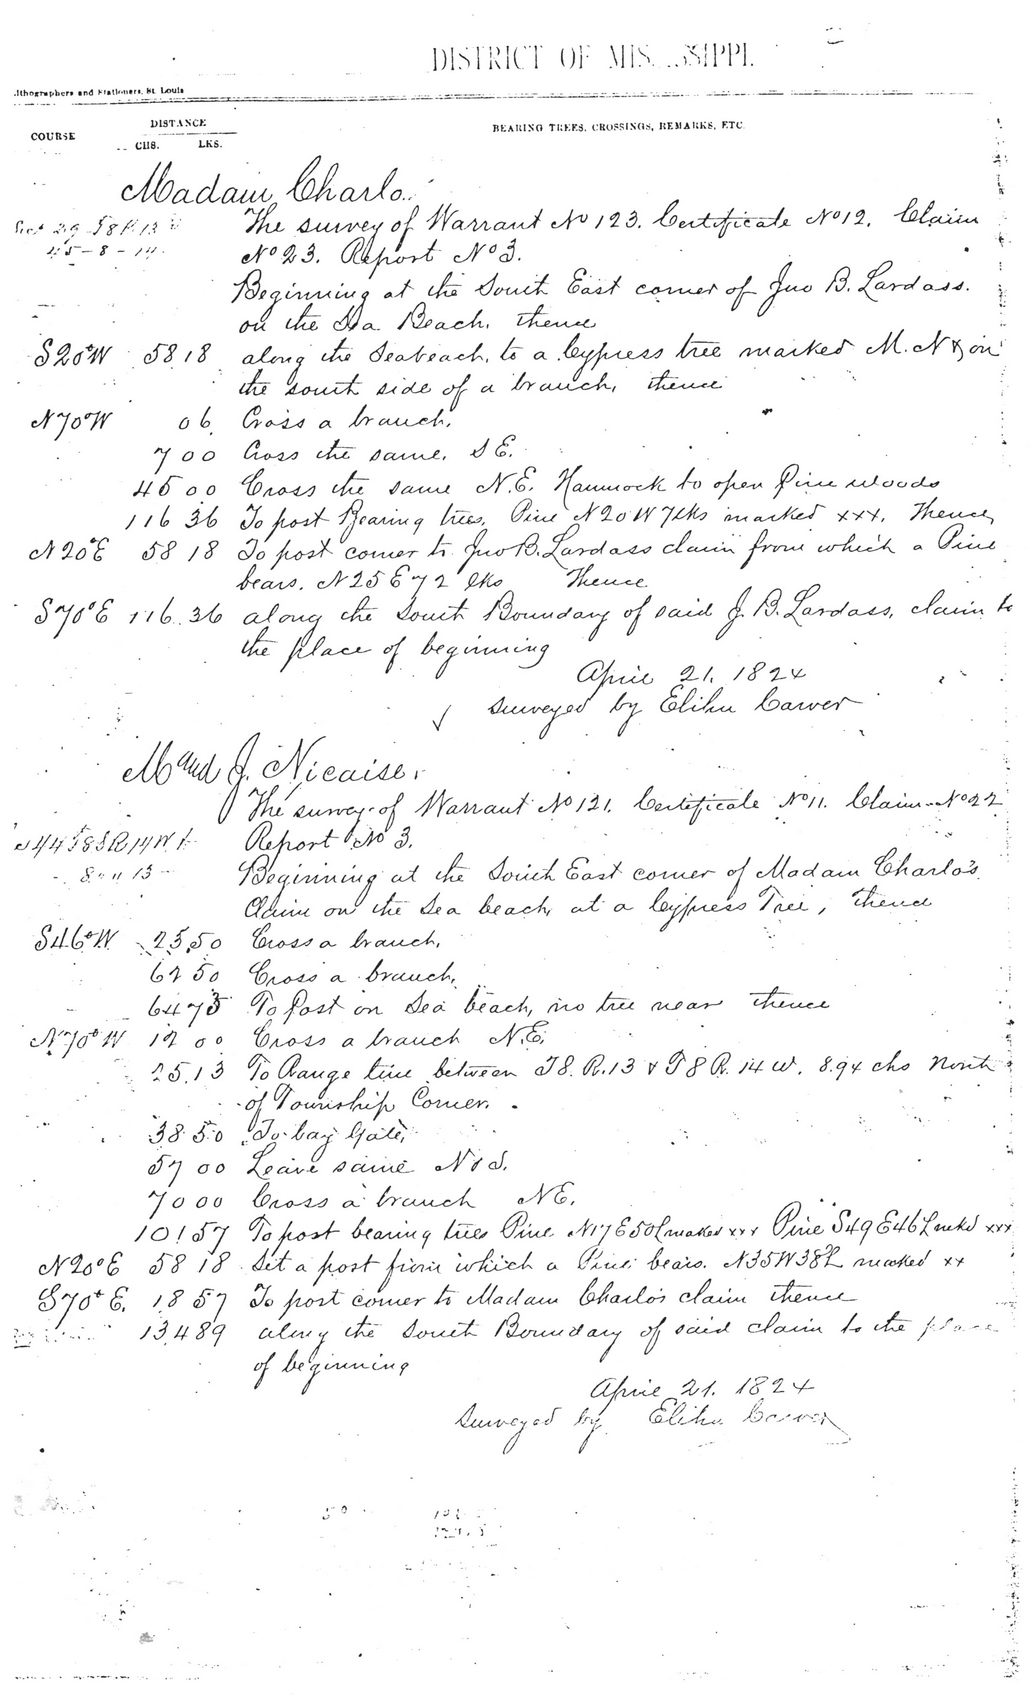 DISTRICT OF MIS SIPPI.
Lithographers and Stationers, St. Louis
COURSE DISTANCE BEARING TREES, CROSSINGS, REMARKS, ETC.
CHS. LKS.
Madam Charlo.
Sect 29 T8 R13 The survey of Warrant No 123. Certificate No 12. Claim
45-8-14 No 23. Report No 3.
Beginning at the South East corner of Jno B. Lardass.
on the Sea Beach, thence
S20°W 58 18 along the Seabeach, to a Cypress tree marked M. N & on
the south side of a branch, thence
N70°W 06 Cross a branch.
7 00 Cross the same. S E.
45 00 Cross the same N.E. Hammock to open Pine woods
116 36 To post Bearing trees, Pine N20W 7lks marked xxx. Thence,
N20°E 58 18 To post corner to Jno B. Lardass claim from which a Pine
bears. N25E 72 lks Thence
S70°E 116.36 along the South Boundary of said J. B. Lardass, claim to
the place of beginning
April 21. 1824
Surveyed by Elihu Carver
M and J. Nicaise.
The survey of Warrant No 121. Certificate No 11. Claim No 22
S44 T8S R14W Report No 3.
Beginning at the South East corner of Madam Charlo's
Claim on the Sea beach, at a Cypress Tree, thence
S46°W 25.50 Cross a branch.
62 50 Cross a branch.
64 75 To Post on Sea beach, no tree near thence
N70°W 12 00 Cross a branch N.E.
25.13 To Range line between T8. R.13 & T8 R.14 W. 8.94 chs North
of Township Corner.
38 50 To bay Gale,
57 00 Leave same N & S.
70 00 Cross a branch NE.
101 57 To post bearing trees Pine N17E50L marked xxx Pine S49E46L mrkd xxx
N20°E 58 18 Set a post from which a Pine bears. N35W38L marked xx
S70°E. 18 57 To post corner to Madam Charlo's claim thence
134 89 along the South Boundary of said claim to the place
of beginning
April 21. 1824
Surveyed by Elihu Carver